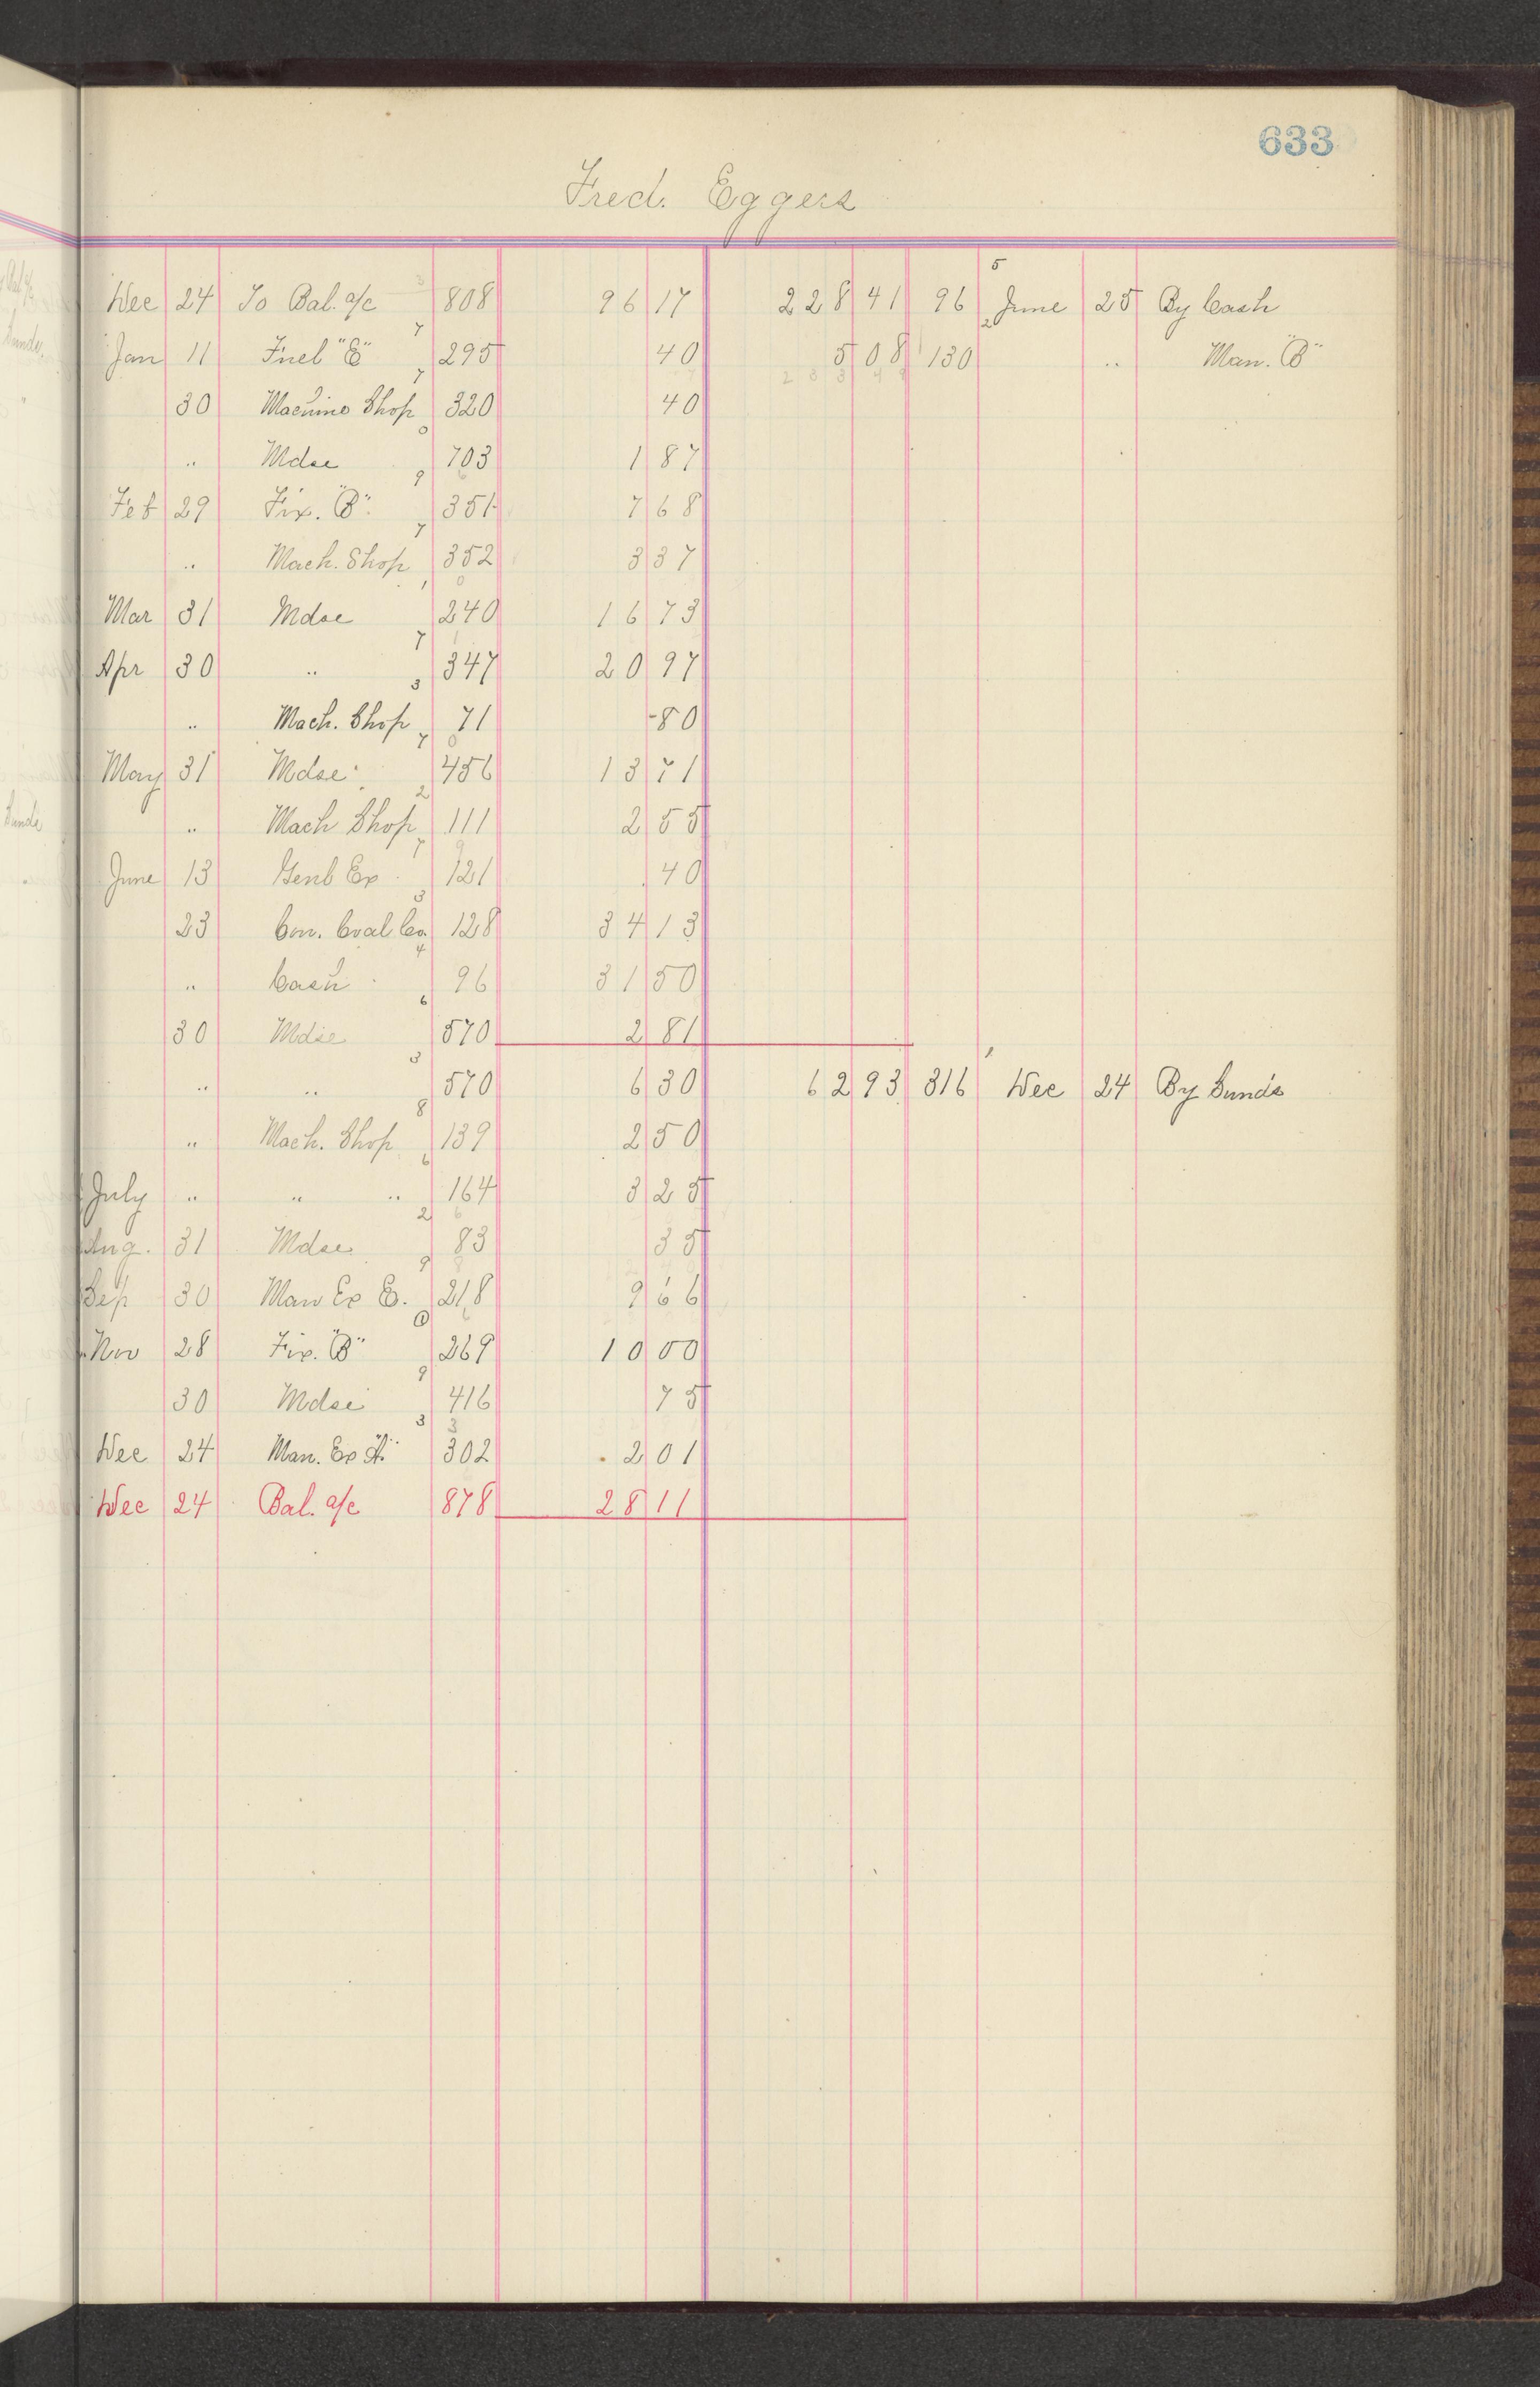 633
Fred. Eggers
Dec 24 To Bal. a/c 808 96 17 228 41 96 June 25 By Cash
Jan 11 Fuel "E" 295 40 5 08 130 " Man. "B"
30 Machine Shop 320 40
" Mdse 703 1 87
Feb 29 Fix. "B" 351 7 68
" Mach. Shop 352 3 37
Mar 31 Mdse 240 16 73
Apr 30 " 347 20 97
" Mach. Shop 71 80
May 31 Mdse 456 13 71
" Mach Shop 111 2 55
June 13 Genl Ex 121 40
23 Con. Coal Co. 128 34 13
" Cash 96 31 50
30 Mdse 570 2 81
" " 570 6 30 62 93 316 Dec 24 By Sunds
" Mach. Shop 139 2 50
July " " " 164 3 25
Aug. 31 Mdse 83 35
Sep 30 Man Ex E. 218 9 66
Nov 28 Fix. "B" 269 10 00
30 Mdse 416 75
Dec 24 Man. Ex "A" 302 2 01
Dec 24 Bal. a/c 878 28 11